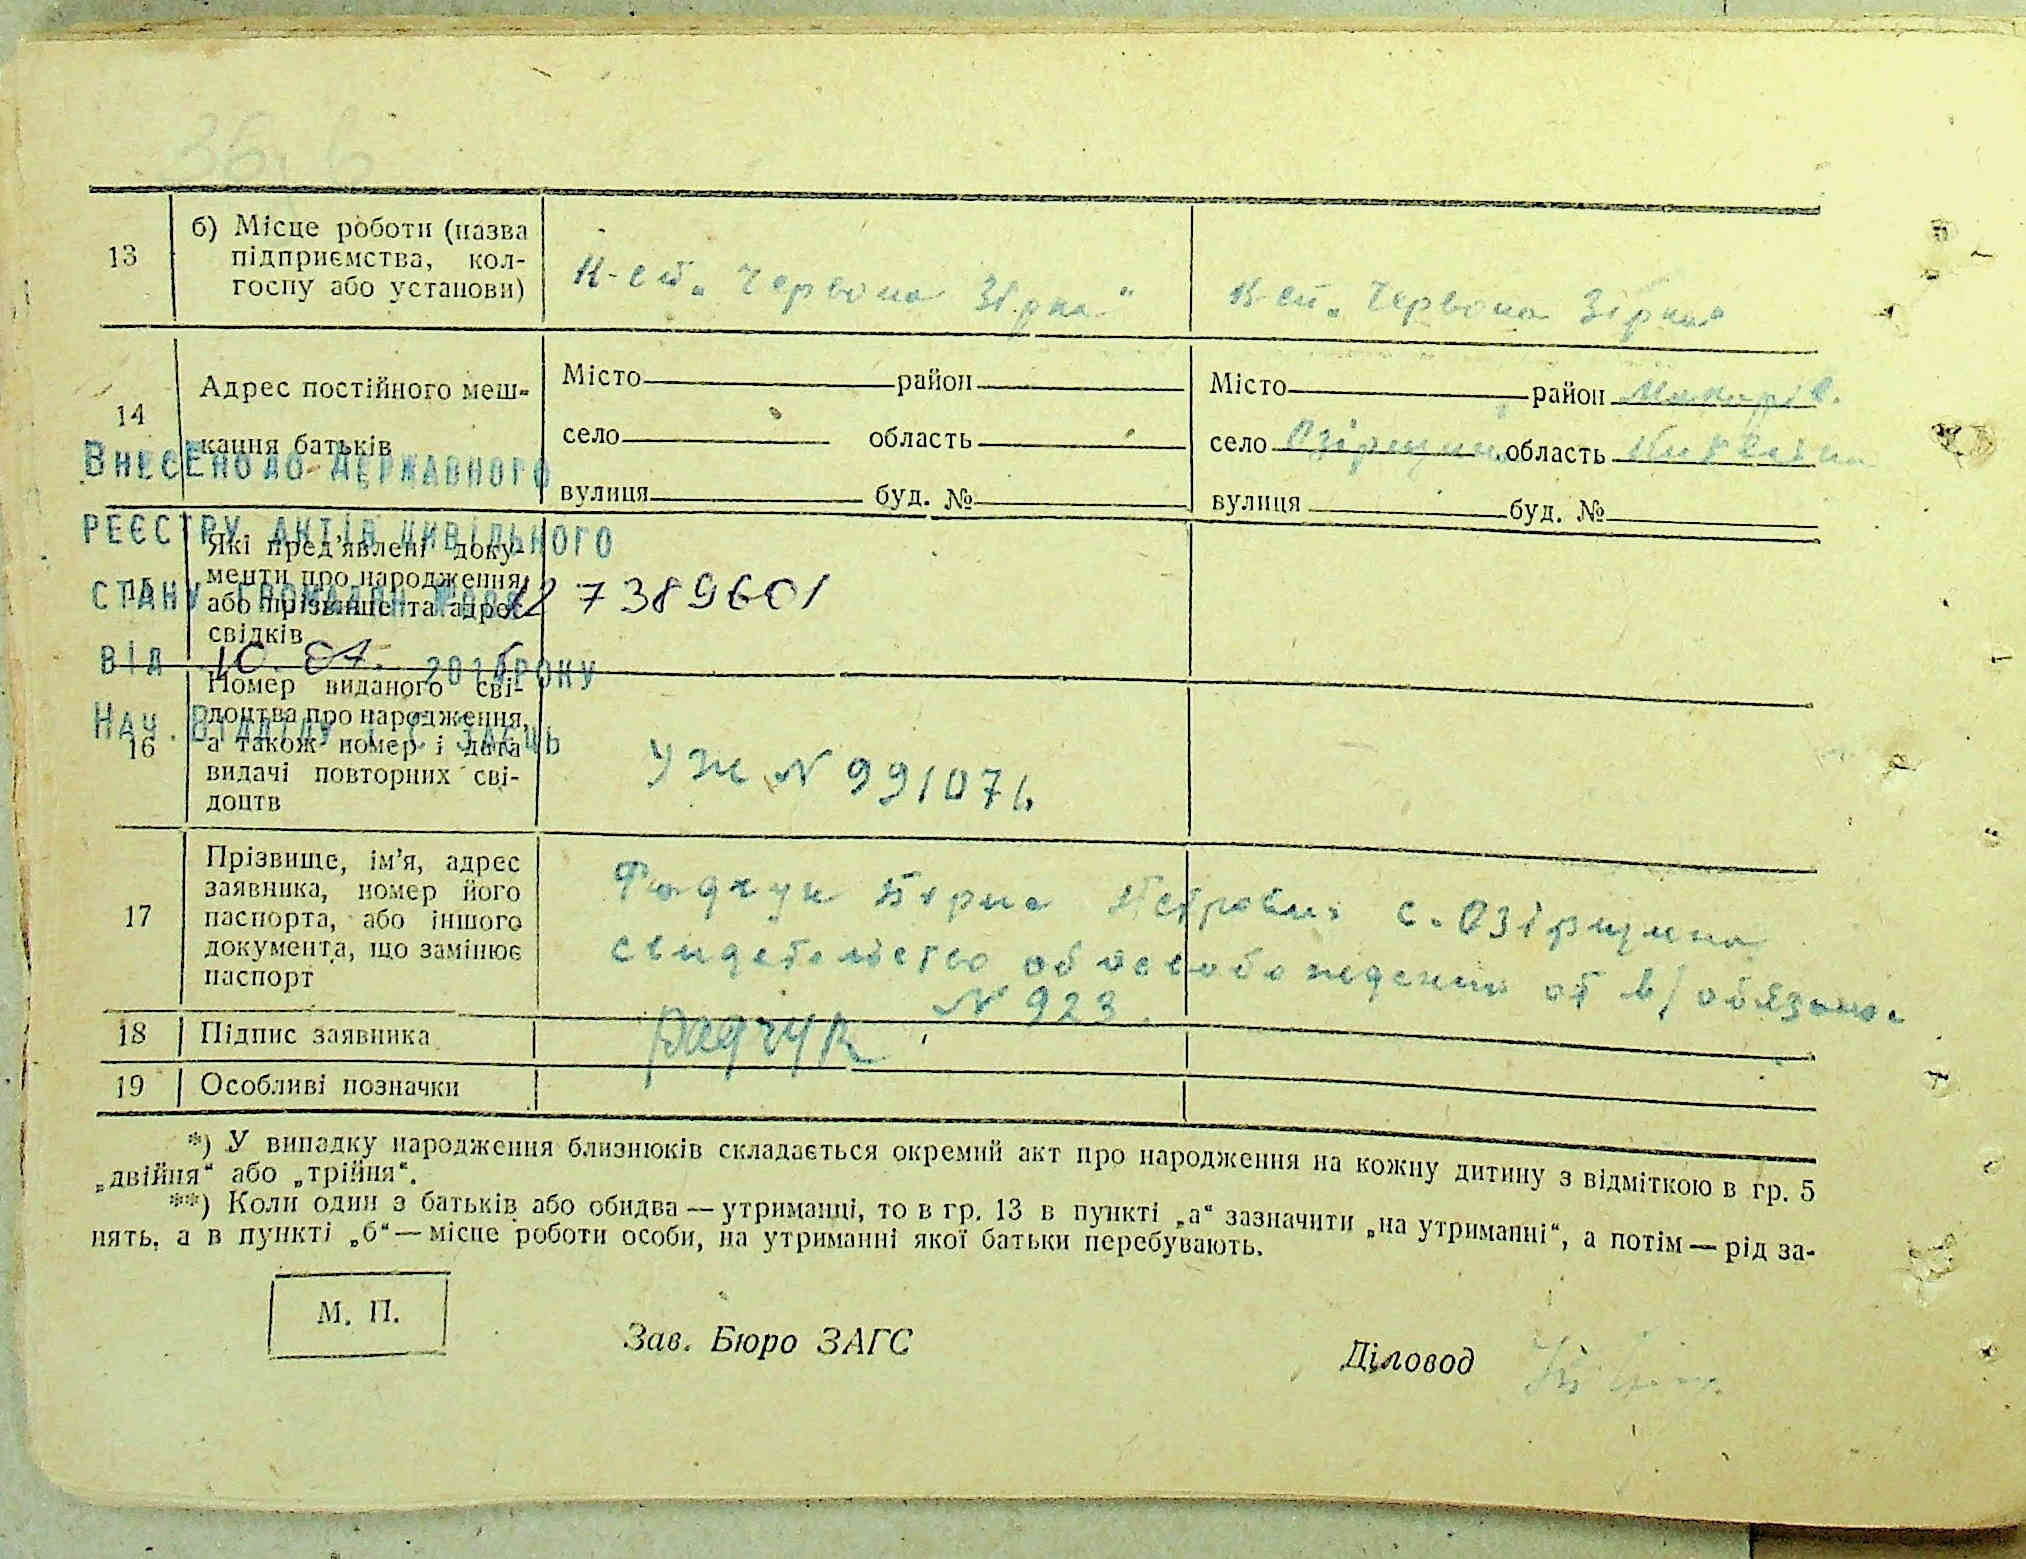 13
б) Місце роботи (назва
підприємства, кол-
госпу або установи)
К-сп „Червона Зірка“
К-сп „Червона Зірка“
14
Адрес постійного меш-
кання батьків
Місто район
село область
вулиця буд. №
Місто район Макарів.
село Озірщина область Київська
вулиця буд. №
Внесено до державного
реєстру актів цивільного
стану громадян №00127389601
від 10.07. 2015 року
Нач. Відділу Заєць
15
Які пред'явлені доку-
менти про народження
або прізвище та адрес
свідків
16
Номер виданого сві-
доцтва про народження,
а також номер і дата
видачі повторних сві-
доцтв
УЖ N 991071.
17
Прізвище, ім'я, адрес
заявника, номер його
паспорта, або іншого
документа, що замінює
паспорт
Петрович с. Озірщина
свидетельство об освобождении от в/обязан.
N 923.
18
Підпис заявника
Радчук
19
Особливі позначки
*) У випадку народження близнюків складається окремий акт про народження на кожну дитину з відміткою в гр. 5
„двійня“ або „трійня“.
**) Коли один з батьків або обидва — утриманці, то в гр. 13 в пункті „а“ зазначити „на утриманні“, а потім — рід за-
нять, а в пункті „б“ — місце роботи особи, на утриманні якої батьки перебувають.
М. П.
Зав. Бюро ЗАГС
Діловод